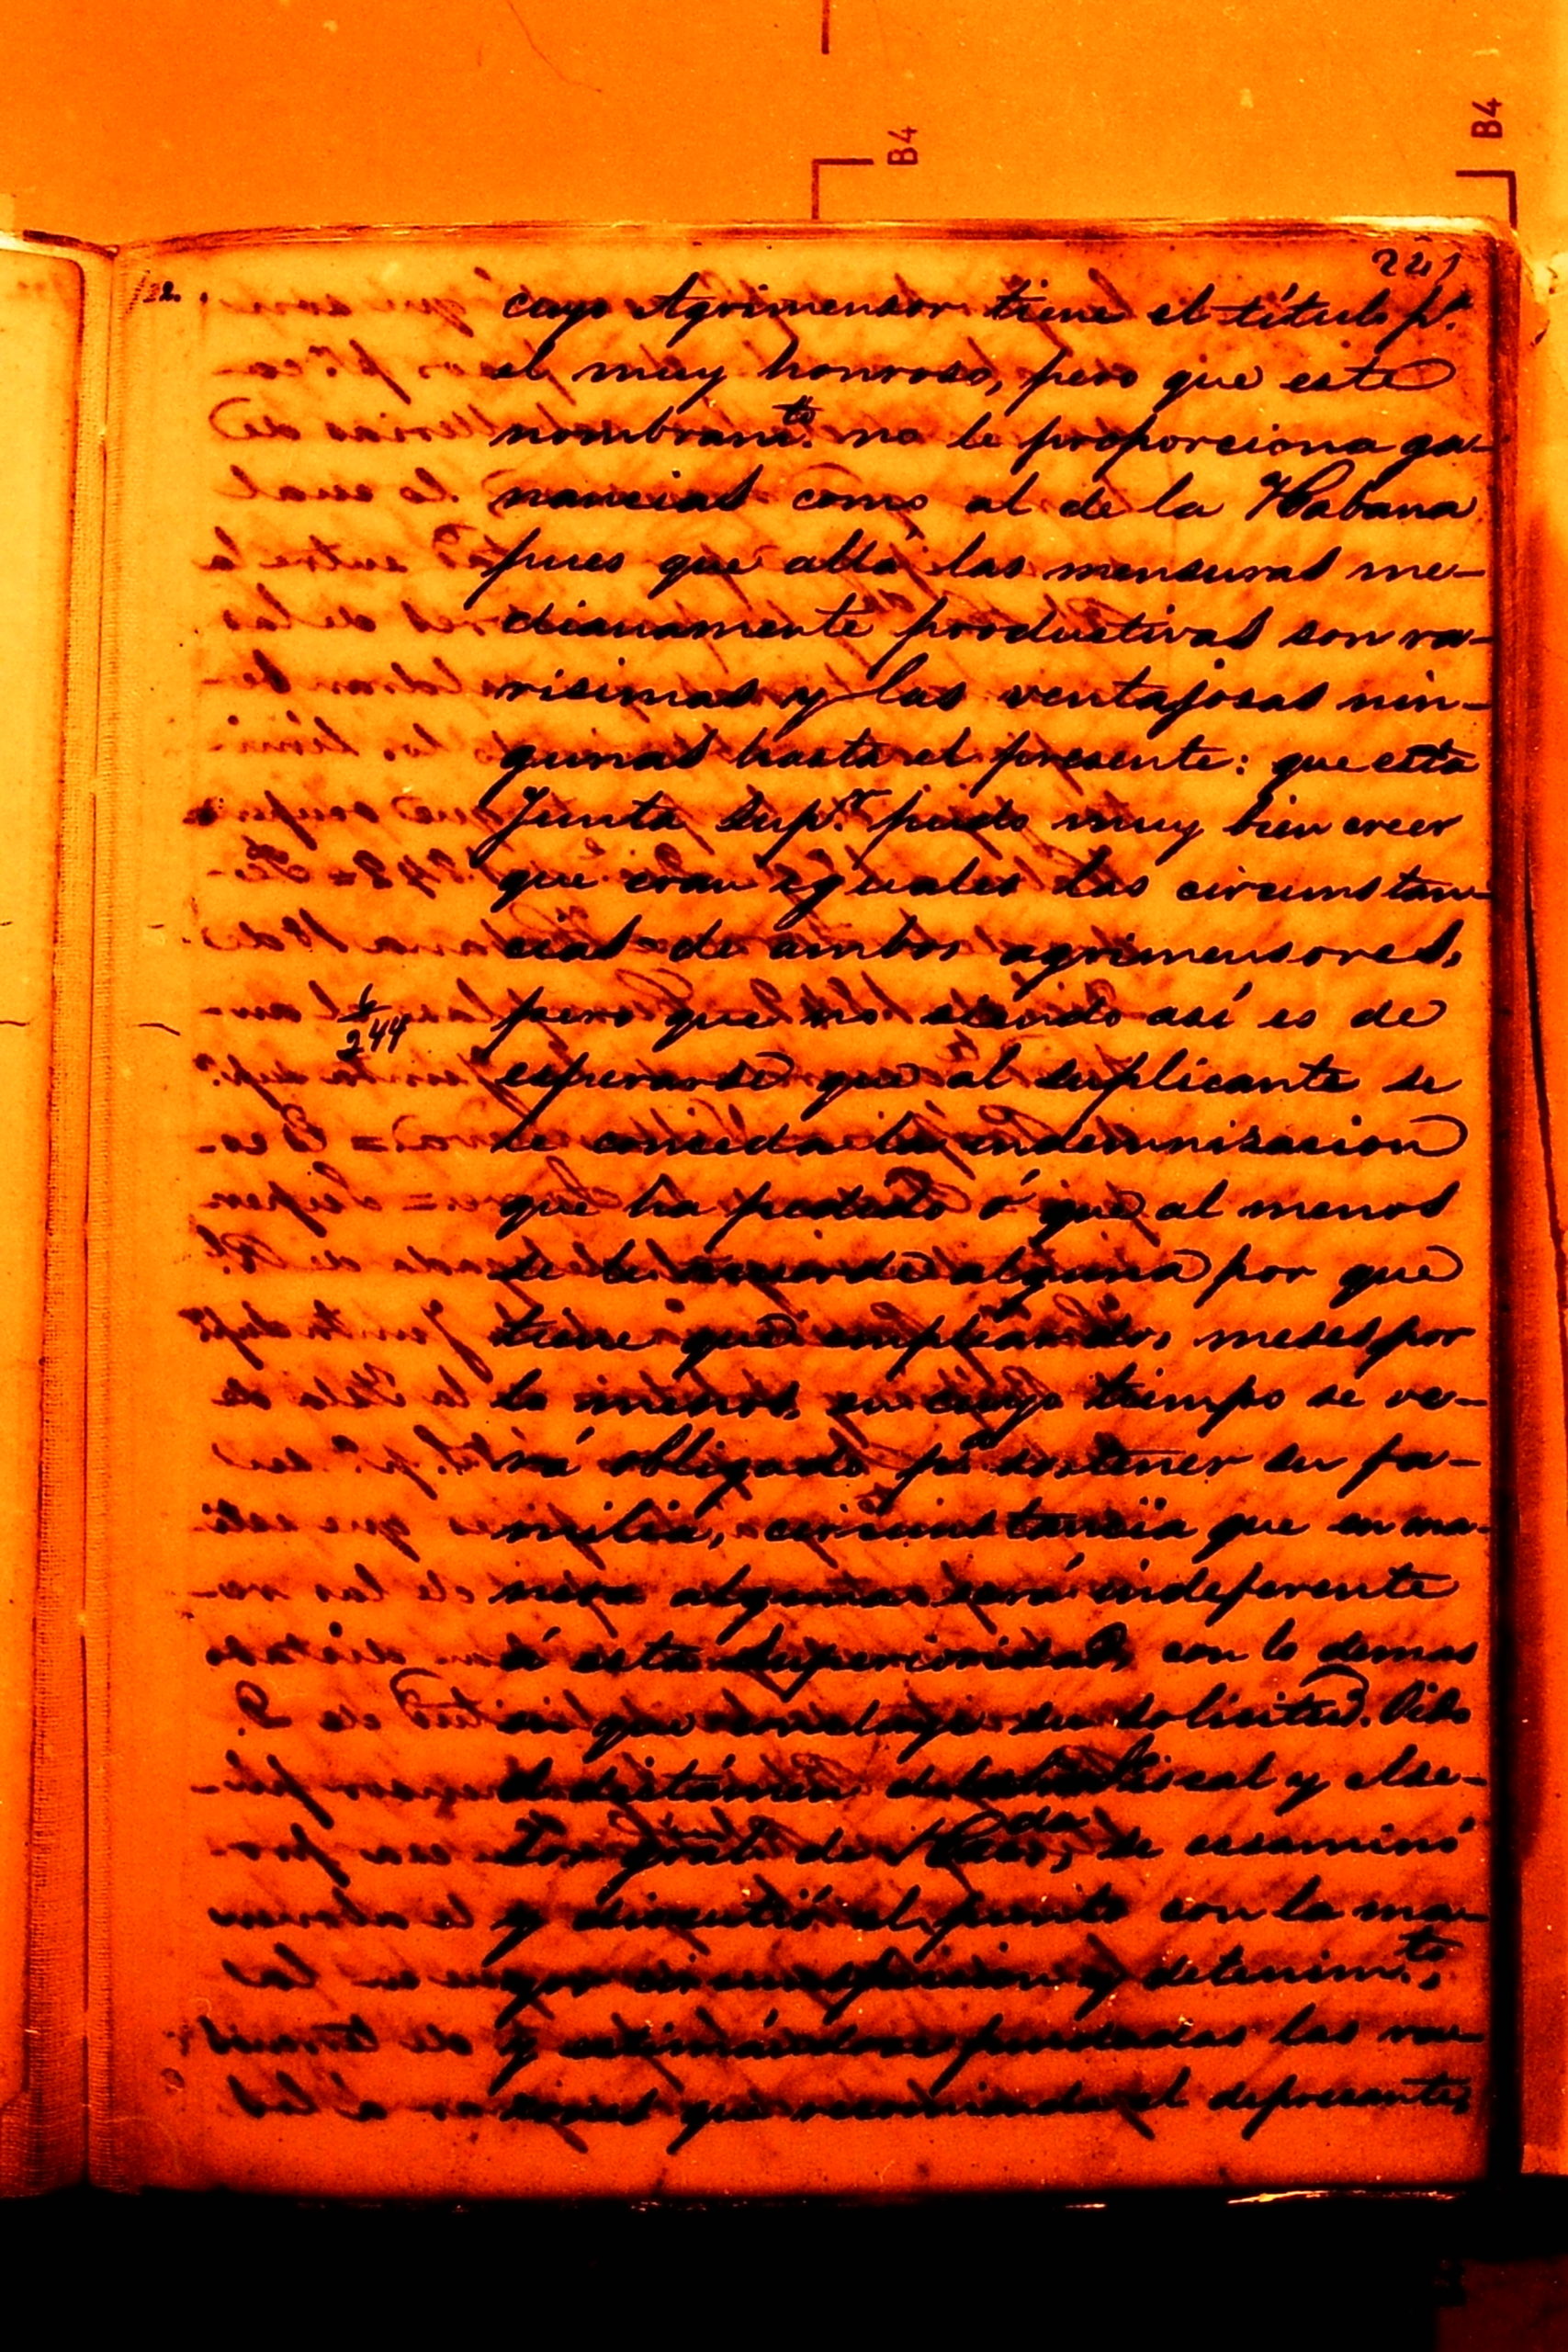 B4
B4
221
22.
cuyo Agrimensor tiene el título pª.
el muy honroso, pero que este
nombram.to no le proporciona ga-
nancias como al de la Habana
pues que allá las mensuras me-
dianamente productivas son ra-
risimas y las ventajosas nin-
gunas hasta el presente: que esta
Junta Sup.r pudo muy bien creer
que eran iguales las circunstan-
cias de ambos agrimensores,
pero que no siendo así es de
6/244
esperarse que al suplicante se
le conceda la indemnisacion
que ha pedido ó que al menos
se le acuerde alguna por que
tiene que emplear dos meses por
lo menos, en cuyo tiempo se ve-
rá obligado pª sostener su fa-
milia, circunstancia que en ma-
nera alguna será indeferente
á esta Superioridad, con lo demas
en que concluye su solicitud. Visto
el dictámen del Fiscal y el se-
de Hac.da, se ecsaminó
y discutió el punto con la ma-
yor circunspeccion y detenim.to,
y estimándose fundadas las ra-
zones que recomienda el esponente,